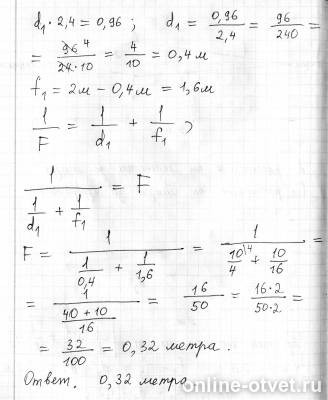 d₁ · 2,4 = 0,96 ; d₁ = 0,96/2,4 = 96/240 =
= 96 4/24·10 = 4/10 = 0,4 м
f₁ = 2м − 0,4м = 1,6м
1/F = 1/d₁ + 1/f₁ )
1/(1/d₁ + 1/f₁) = F
F = 1/(1/0,4 + 1/1,6) = 1/(10\4/4 + 10/16) =
= 1/((40 + 10)/16) = 16/50 = 16·2/50·2 =
= 32/100 = 0,32 метра .
Ответ. 0,32 метра
online-otvet.ru